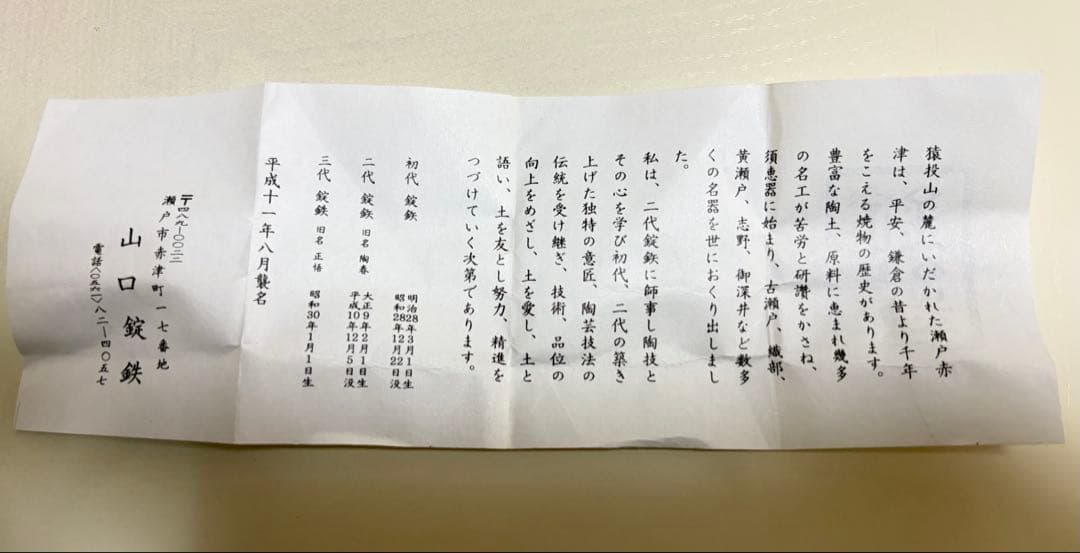 猿投山の麓にいだかれた瀬戸赤
津は、平安、鎌倉の昔より千年
をこえる焼物の歴史があります。
豊富な陶土、原料に恵まれ幾多
の名工が苦労と研讃をかさね、
須恵器に始まり、古瀬戸、織部、
黄瀬戸、志野、御深井など数多
くの名器を世におくり出しまし
た。
私は、二代錠鉄に師事し陶技と
その心を学び初代、二代の築き
上げた独特の意匠、陶芸技法の
伝統を受け継ぎ、技術、品位の
向上をめざし、土を愛し、土と
語い、土を友とし努力、精進を
つづけていく次第であります。
初代 錠鉄 明治28年3月1日生
昭和28年12月22日没
二代 錠鉄 旧名 陶春 大正9年2月1日生
平成10年12月5日没
三代 錠鉄 旧名 正悟 昭和30年1月1日生
平成十一年八月襲名
〒四八九-〇〇二二
瀬戸市赤津町一七番地
山口錠鉄
電話(〇五六一)八二-四〇五七